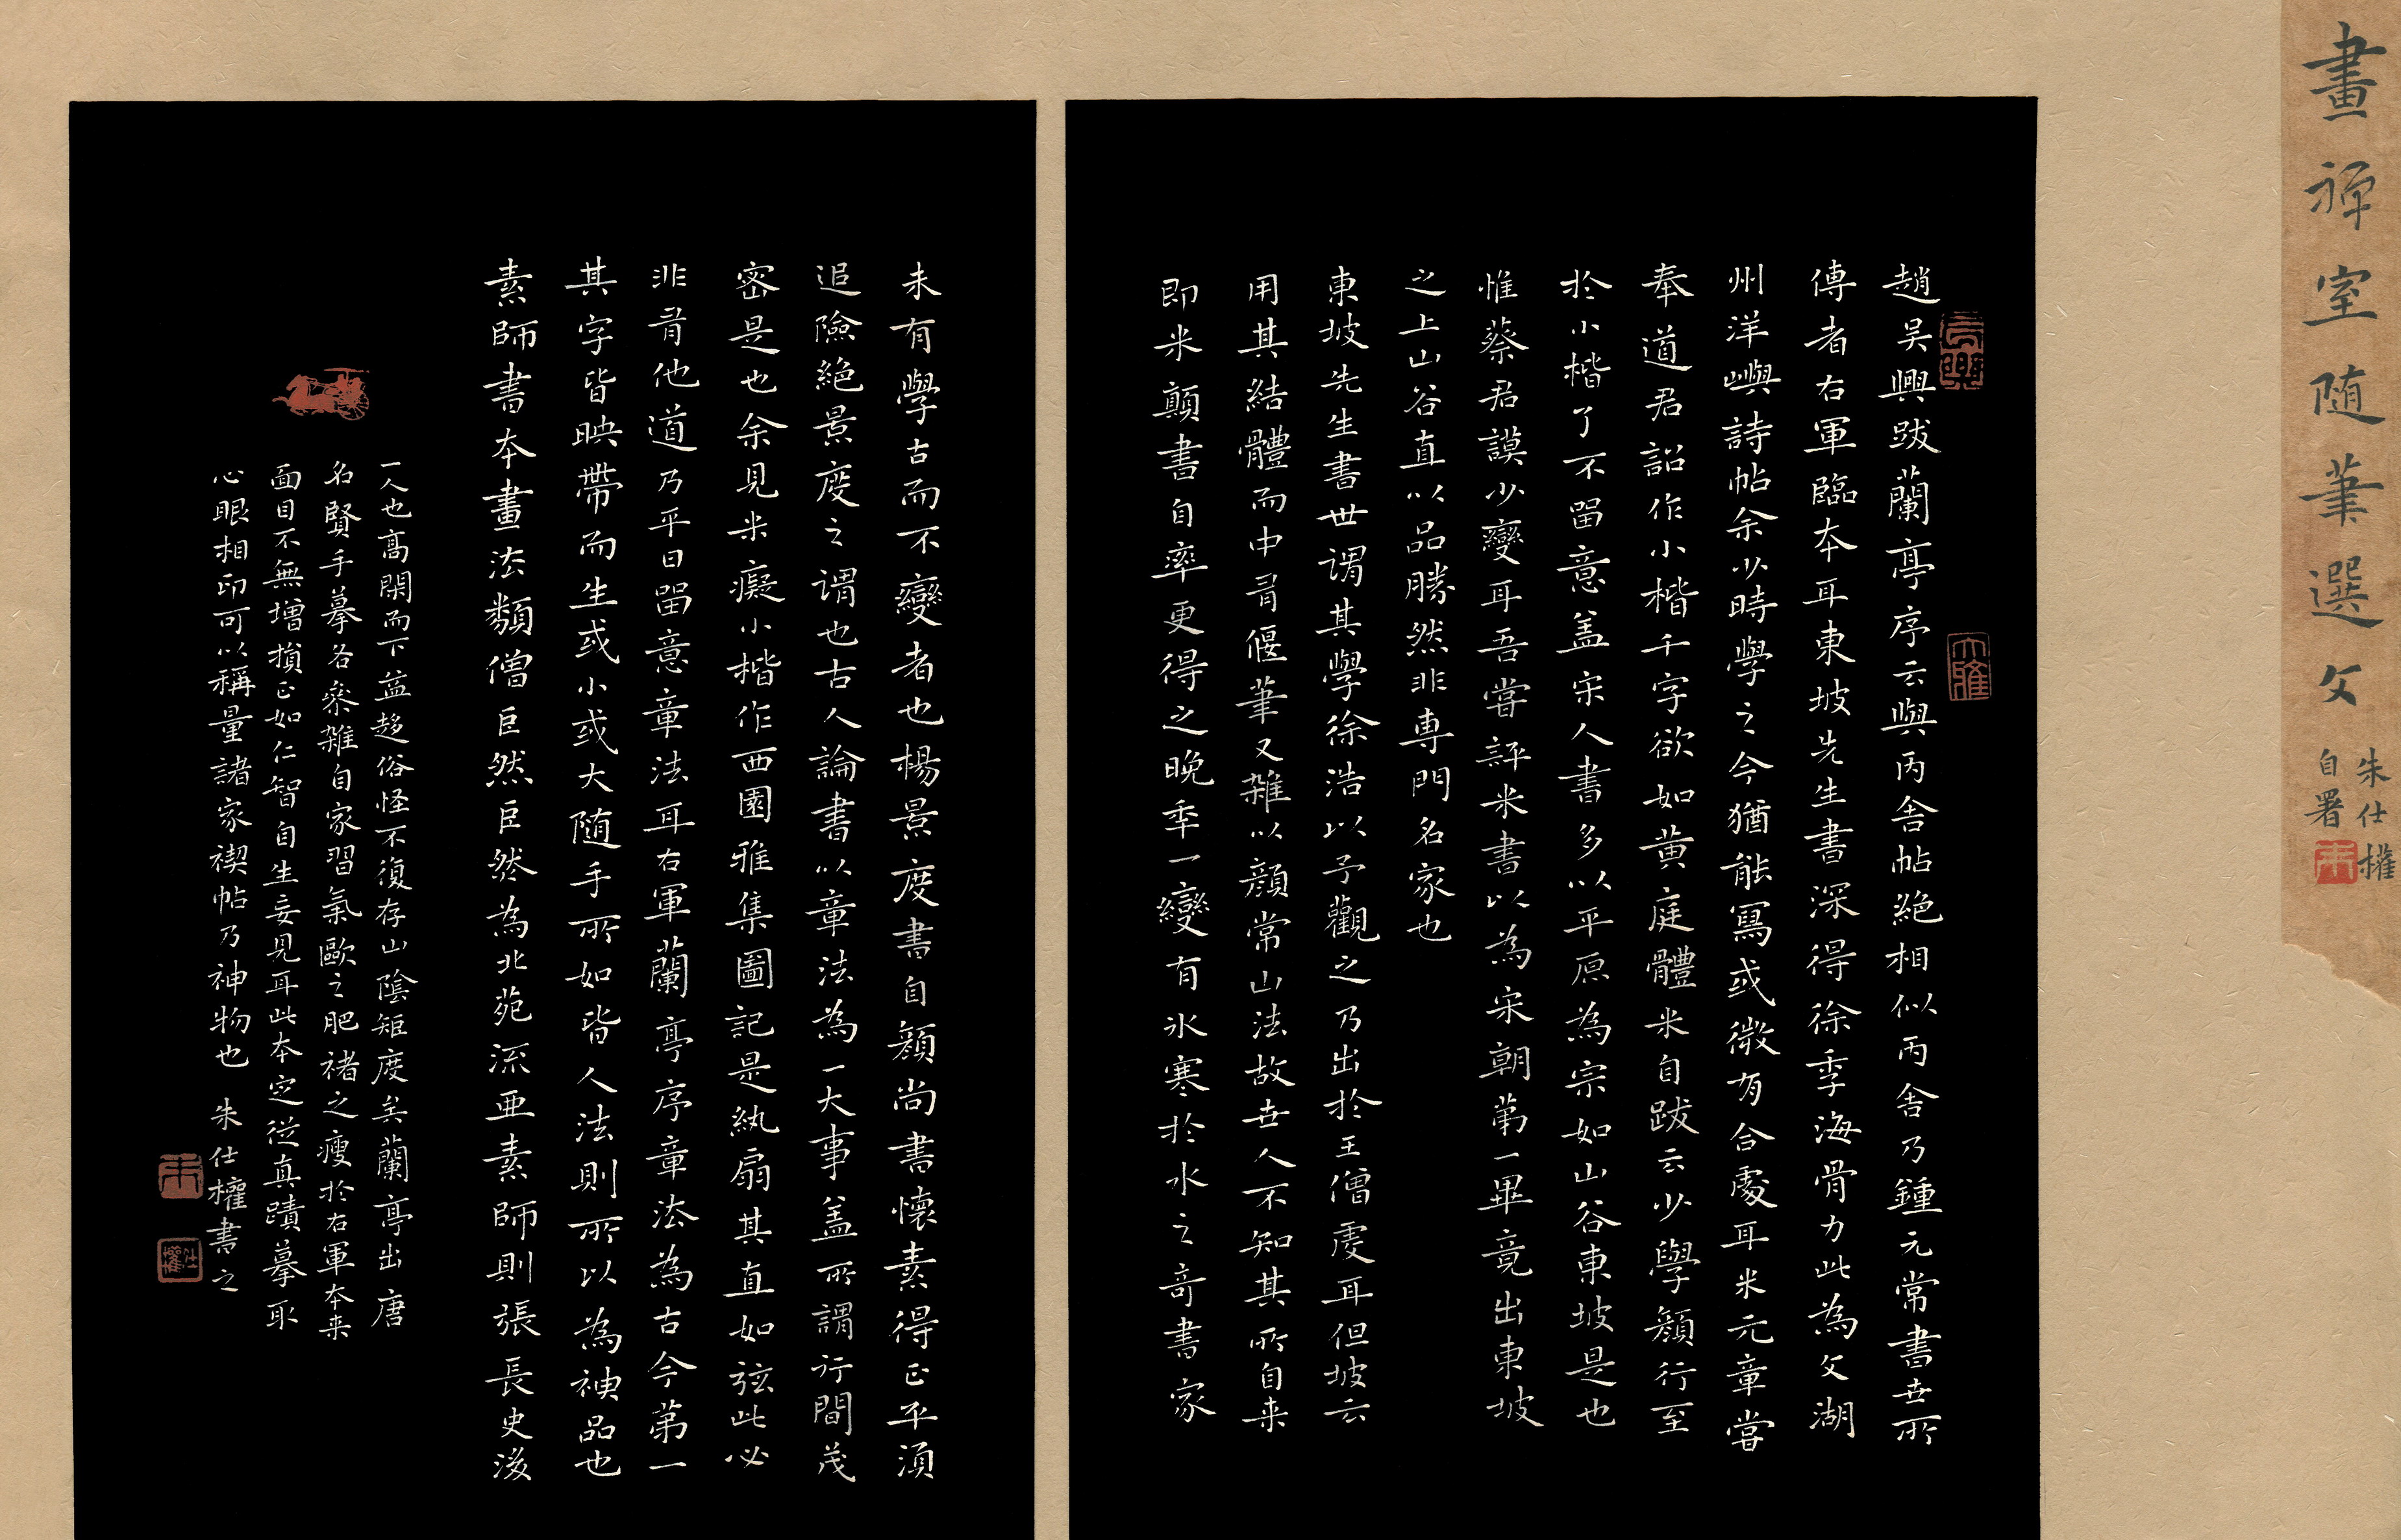 畫禪室隨筆選文
朱仕權
自署
趙吳興跋蘭亭序云與丙舍帖絕相似丙舍乃鍾元常書世所
傳者右軍臨本耳東坡先生書深得徐季海骨力此為文湖
州洋嶼詩帖余少時學之今猶能寫或微有合處耳米元章嘗
奉道君詔作小楷千字欲如黃庭體米自跋云少學顏行至
於小楷了不留意盖宋人書多以平原為宗如山谷東坡是也
惟蔡君謨少變耳吾嘗評米書以為宋朝第一畢竟出東坡
之上山谷直以品勝然非專門名家也
東坡先生書世謂其學徐浩以予觀之乃出於王僧虔耳但坡云
用其結體而中有偃筆又雜以顏常山法故世人不知其所自来
即米顛書自率更得之晚年一變有冰寒於水之奇書家
未有學古而不變者也楊景度書自顏尚書懷素得正平湏
追險絕景度之謂也古人論書以章法為一大事盖所謂行間茂
密是也余見米癡小楷作西園雅集圖記是紈扇其直如弦此必
非有他道乃平日留意章法耳右軍蘭亭序章法為古今第一
其字皆映帶而生或小或大随手所如皆人法則所以為神品也
素師書本畫法類僧巨然巨然為北苑流亞素師則張長史後
一人也高閑而下益趍俗怪不復存山陰矩度矣蘭亭出唐
名賢手摹各叅雜自家習氣歐之肥褚之瘦於右軍本来
面目不無增損正如仁智自生妄見耳此本定從真蹟摹取
心眼相印可以稱量諸家禊帖乃神物也 朱仕權書之